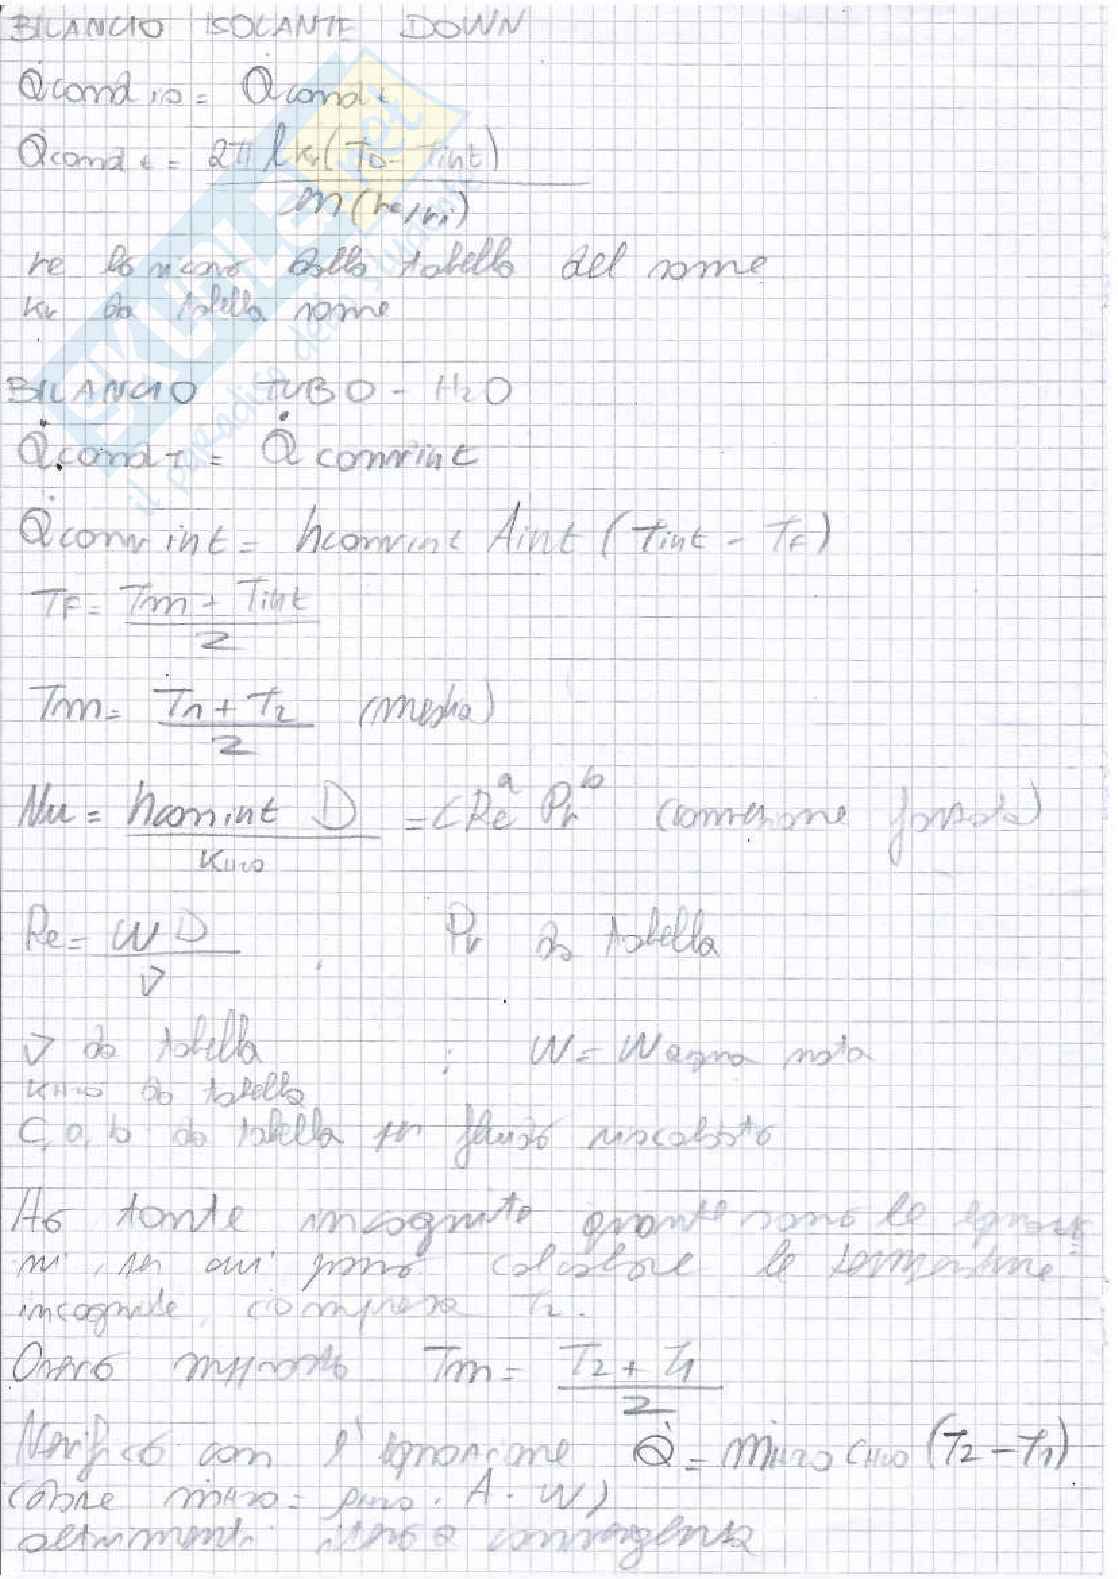 BILANCIO ISOLANTE DOWN
Q̇cond,is = Q̇cond t
Q̇cond t = 2π l kr (TD - Tint)
ln(re/ri)
re lo ricavo dalla tabella del rame
kr da tabella rame
BILANCIO TUBO - H2O
Q̇cond T = Q̇convint
Q̇conv int = hconvint Aint (Tint - TF)
TF = Tm + Tint
2
Tm = T1 + T2 (media)
2
Nu = hconvint D = C Re^a Pr^b (convezione forzata)
KH2O
Re = W D Pr da tabella
ν
ν da tabella ; W = Wacqua nota
KH2O da tabella
C, a, b da tabella per fluido riscaldato
Ho tante incognite quante sono le equazio=
ni, per cui posso calcolare le temperature
incognite, compresa T2.
Avevo supposto Tm = T2 + T1
2
Verifico con l'equazione Q̇ = ṁH2O CH2O (T2 - T1)
(dove ṁH2O = ρH2O · A · W)
altrimenti itero a convergenza
EKUOLE.net
il paradiso dello studente